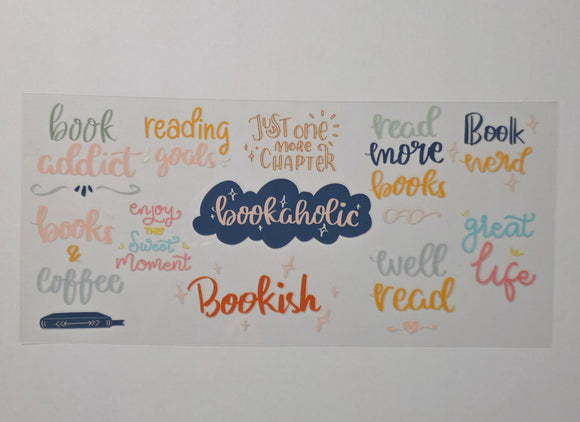 book
addict
reading
goals
Just one
more
chapter
read
more
books
Book
nerd
enjoy
this
sweet
moment
bookaholic
books
&
coffee
Bookish
well
read
great
life